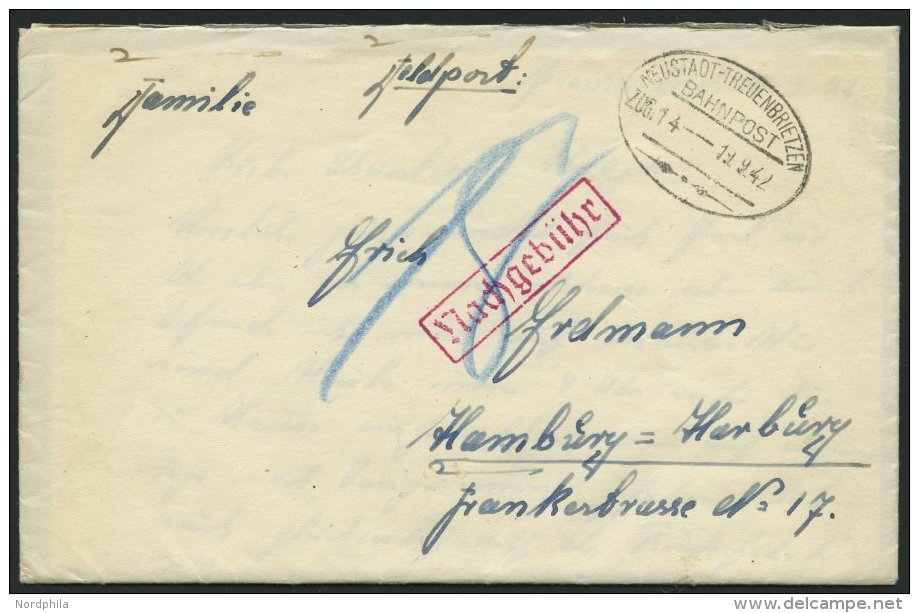 Feldpost:
Familie
NEUSTADT-TREUENBRIETZEN
BAHNPOST
ZUG.14 19.9.42
18
Nachgebühr
Erich
Erdmann
Hamburg = Harburg
Frankerstrasse No 17.
Nordphila
delcampe.net